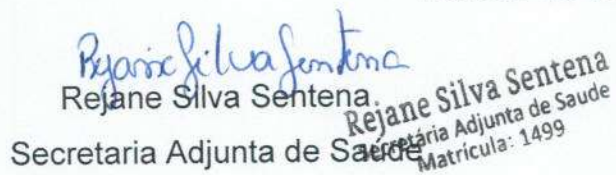 Rejane Silva Sentena
Rejane Silva Sentena
Secretaria Adjunta de Saúde
Rejane Silva Sentena
Secretária Adjunta de Saude
Matrícula: 1499